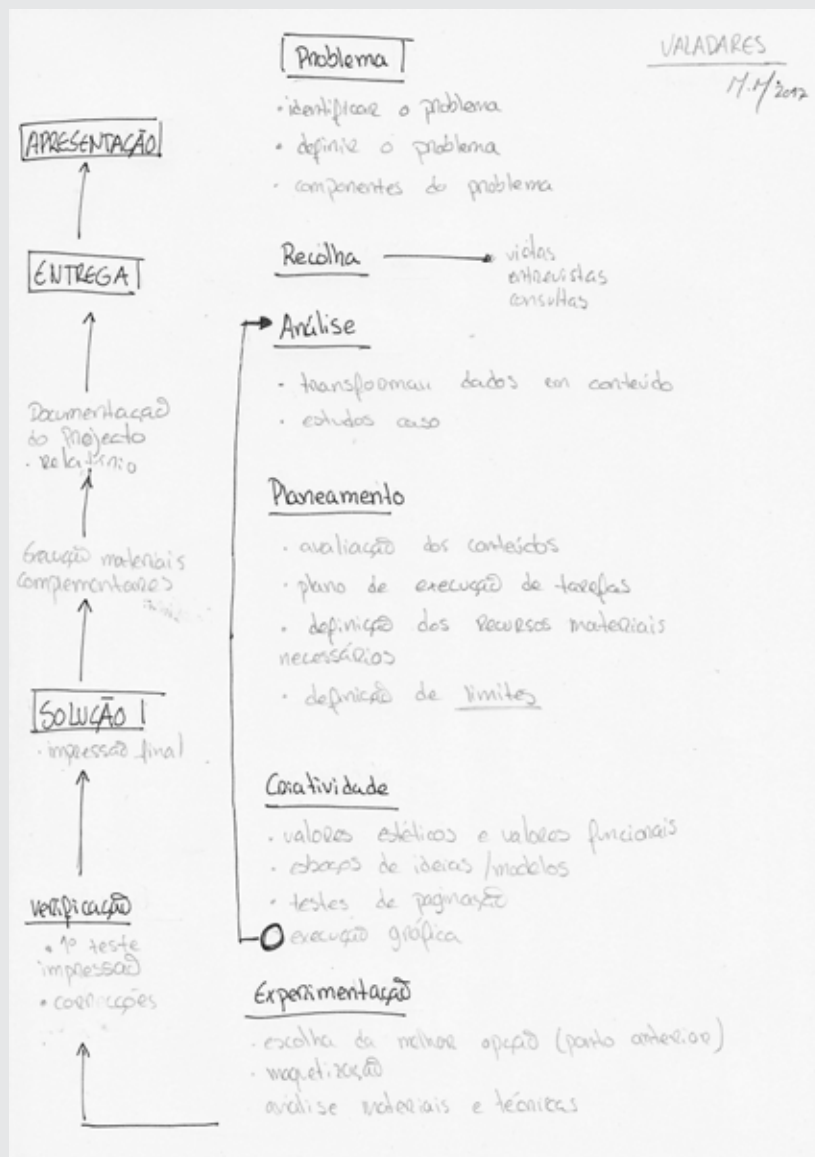 VALADARES
M.M 2017
Problema
• identificar o problema
• definir o problema
• componentes do problema
Recolha
visitas
entrevistas
consultas
Análise
• transformar dados em conteúdo
• estudos caso
Planeamento
• avaliação dos conteúdos
• plano de execução de tarefas
• definição dos recursos materiais
necessários
• definição de limites
Criatividade
• valores estéticos e valores funcionais
• esboços de ideias / modelos
• testes de paginação
execução gráfica
Experimentação
• escolha da melhor opção (ponto anterior)
• maquetização
análise materiais e técnicas
verificação
• 1º teste
impressão
• correcções
SOLUÇÃO
• impressão final
Execução materiais
complementares
Documentação
do Projecto
• relatório
ENTREGA
APRESENTAÇÃO